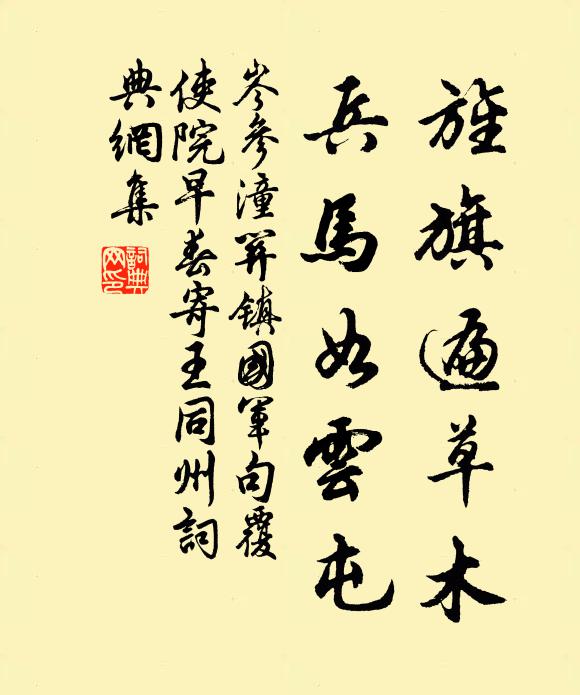 旌旗遍草木
兵馬如雲屯
岑參潼關鎮國軍句覆
使院早春寄王同州詞
典網集
詞典
网印